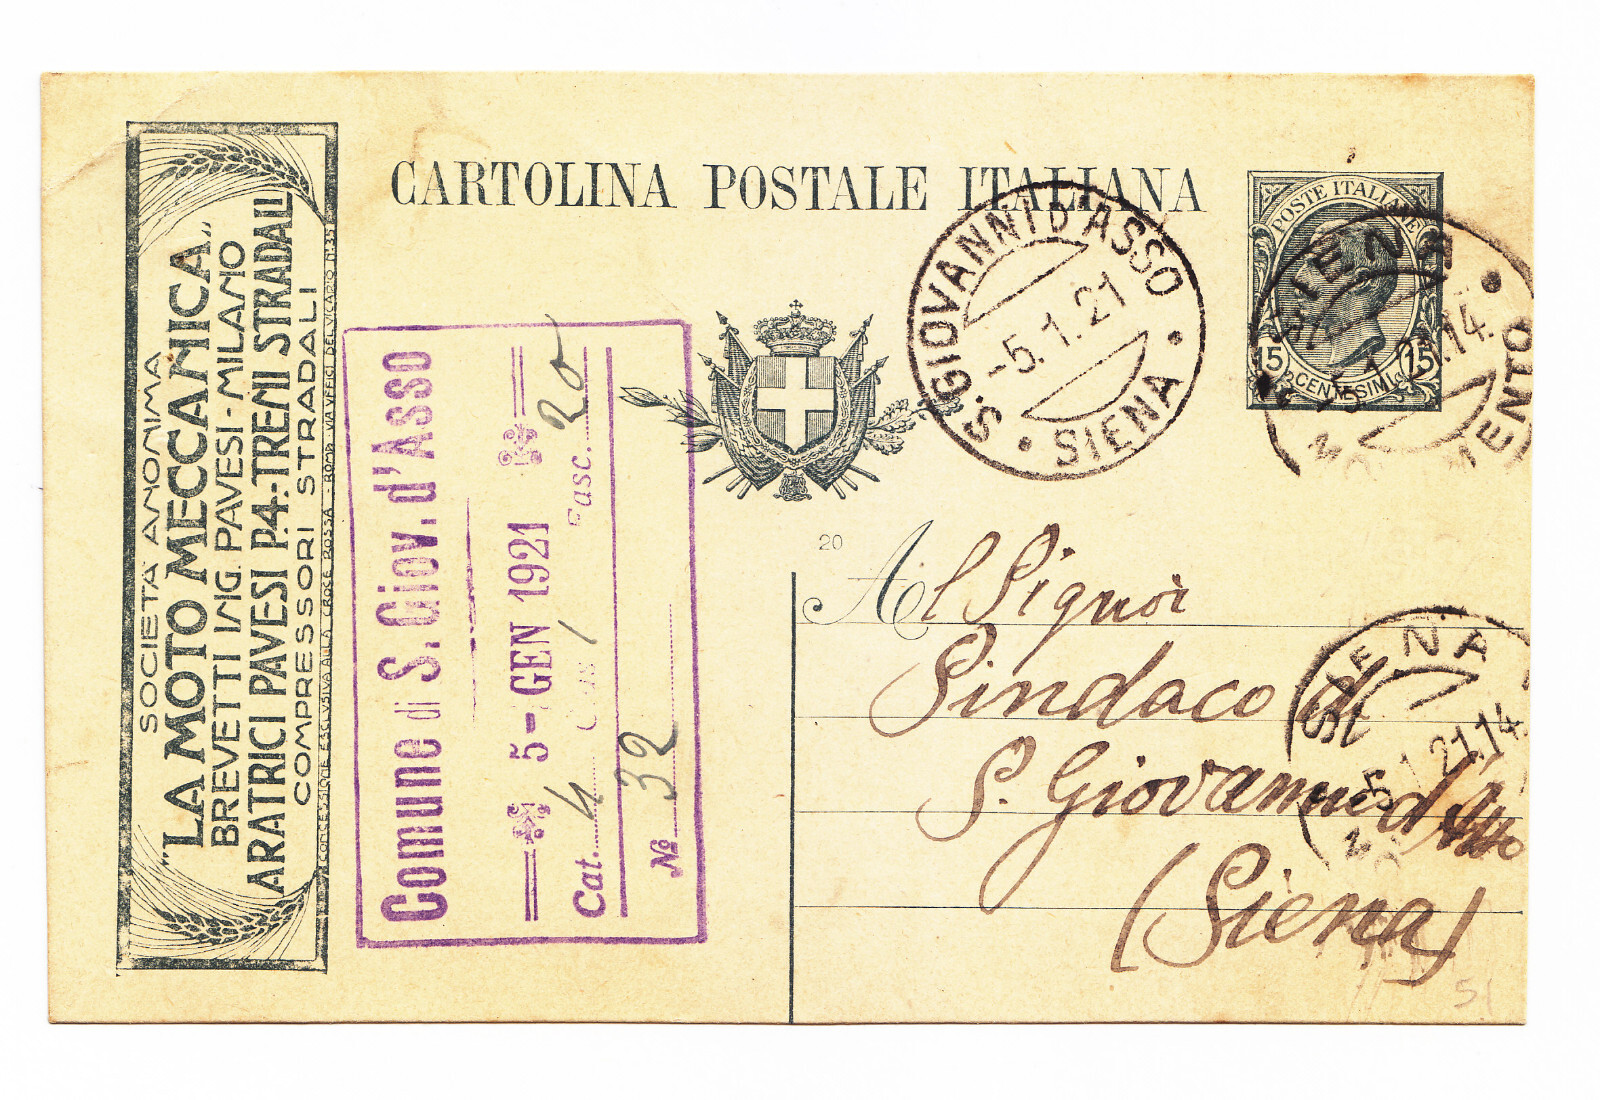 CARTOLINA POSTALE ITALIANA
SOCIETÀ ANONIMA
"LA MOTO MECCANICA„
BREVETTI ING. PAVESI - MILANO
ARATRICI PAVESI P.4.-TRENI STRADALI
COMPRESSORI STRADALI
CONCESSIONE ESCLUSIVA ALLA CROCE ROSSA - ROMA VIA UFFICI DEL VICARIO N. 35
Comune di S. Giov. d'Asso
5-GEN 1921
Cat. 4 Clas. 1 Fasc. 20
№ 32
S. GIOVANNI D'ASSO
-5.1.21
• SIENA •
POSTE ITALIANE
15 CENTESIMI 15
SIENA
-5.1.21.14
20
Al Signor
Sindaco di
S. Giovanni d'Asso
(Siena)
SIENA
-5.1.21.14
51